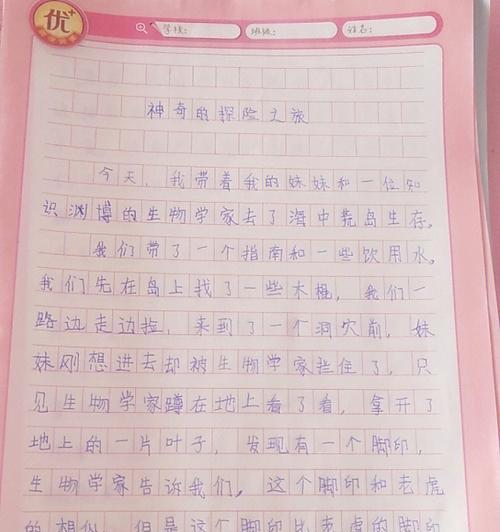 优+
学校: 班级: 姓名:
神奇的探险之旅
今天,我带着我的妹妹和一位知
识渊博的生物学家去了海中荒岛生存。
我们带了一个指南和一些饮用水。
我们先在岛上找了一些木棍,我们一
路边走边捡,来到了一个洞穴前,妹
妹刚想进去却被生物学家拦住了,只
见生物学家蹲在地上看了看,拿开了
地上的一片叶子,发现有一个脚印,
生物学家告诉我们,这个脚印和老虎
的想似,但是这个脚印比老虎的脚印